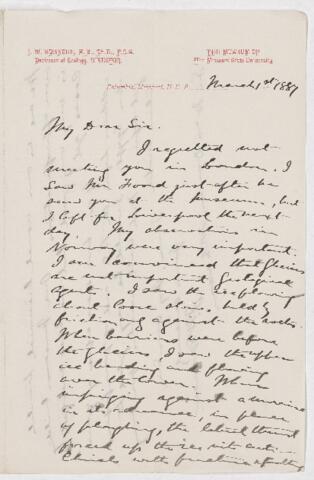 J. W. SPENCER, B.A., Ph.D., F.G.S.
Professor of Geology,
THE MUSEUM OF
The Missouri State University
Columbia, Missouri, U.S.A.
March 1st 1887
My Dear Sir.
I regretted not
meeting you in London. I
saw Mr Foord just after he
saw you at the Museum, but
I left for Liverpool the next
day. My observations in
Norway were very important.
I am convinced that glaciers
are not important Geological
agents. I saw the ice flowing
about loose stones, held by
friction only against the rocks.
When barriers were before
the glaciers, I saw the upper
ice bending and flowing
over the lower. When
impinging against a moraine
in its advance, in place
of ploughing, the lateral thrust
forced up the ice into anti-
clinals with